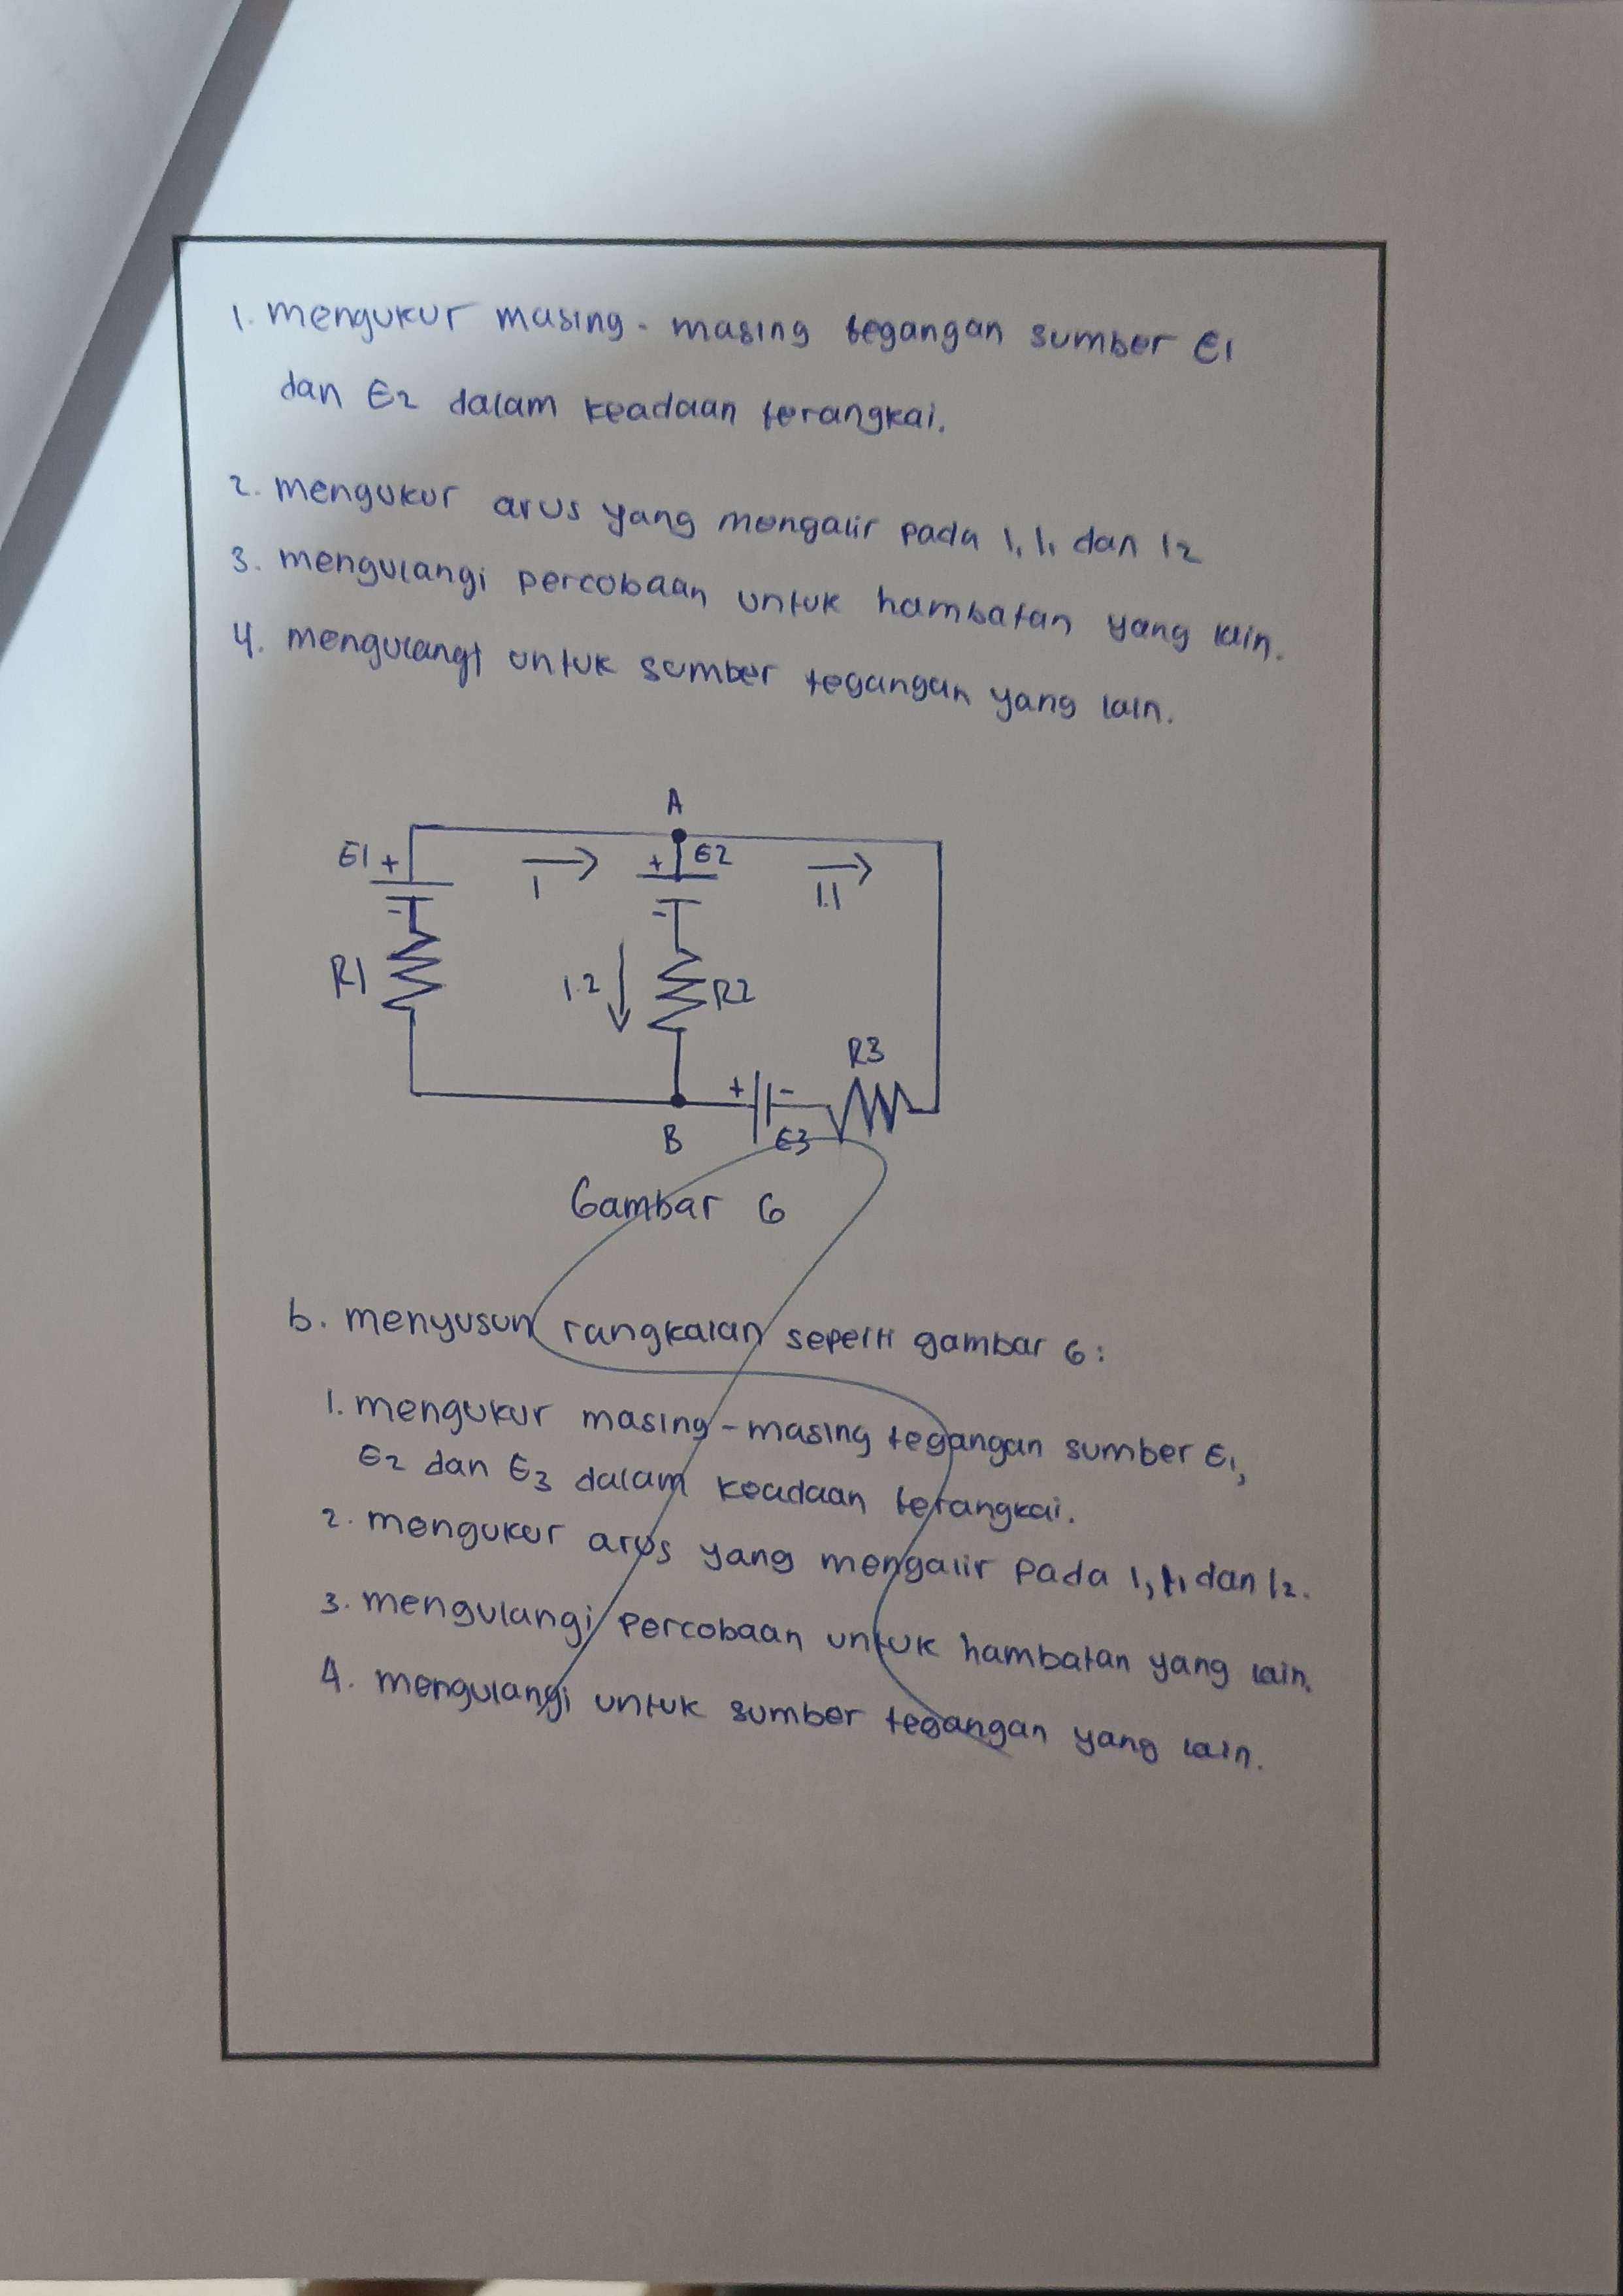 1. mengukur masing-masing tegangan sumber E1
dan E2 dalam keadaan terangkai.
2. mengukur arus yang mengalir pada I, I1 dan I2
3. mengulangi percobaan untuk hambatan yang lain.
4. mengulangi untuk sumber tegangan yang lain.
A
E1 +
I
+ E2
I.1
-
-
R1
I.2
R2
R3
+ -
B
E3
Gambar 6
b. menyusun rangkaian seperti gambar 6:
1. mengukur masing-masing tegangan sumber E1,
E2 dan E3 dalam keadaan terangkai.
2. mengukur arus yang mengalir pada I, I1 dan I2.
3. mengulangi percobaan untuk hambatan yang lain.
4. mengulangi untuk sumber tegangan yang lain.